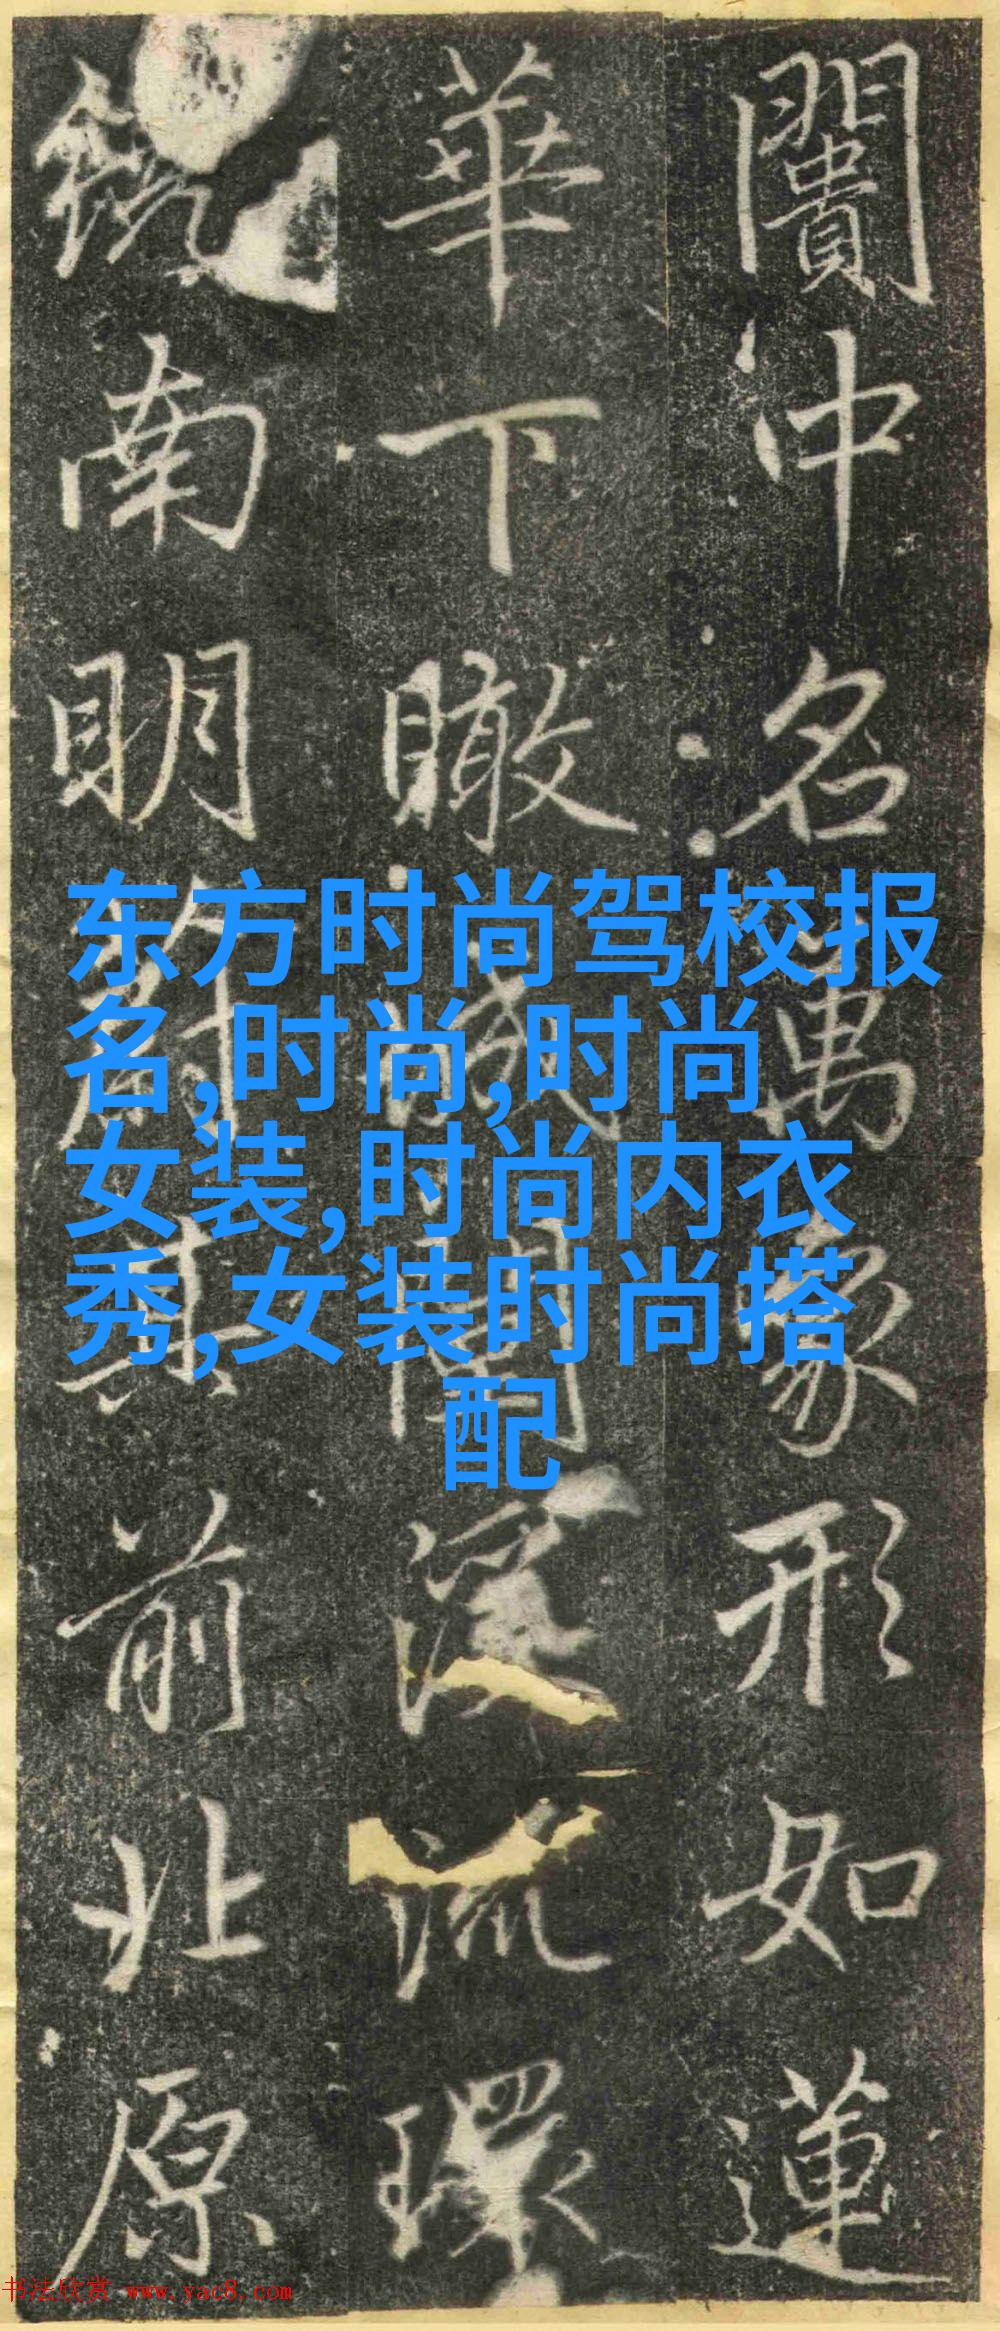 闠冲名萬象形如蓮
華下瞰城深流環
南明其前北原
东方时尚驾校报
名,时尚,时尚
女装,时尚内衣
秀,女装时尚搭
配
书法欣赏 www.yac8.com